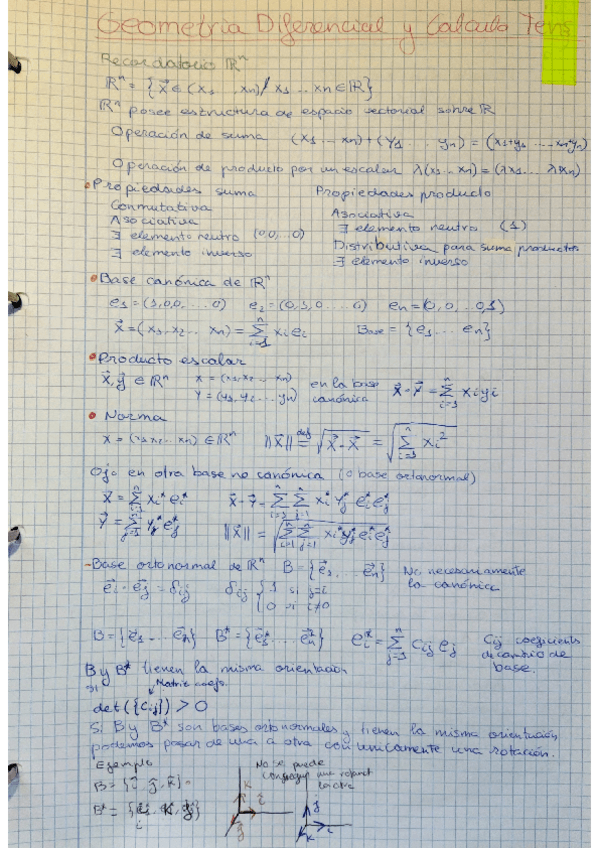 Geometria Diferencial y Calculo Tens
Recordatorio ℝⁿ
ℝⁿ = {x⃗ ∈ (x₁, ... xn) / x₁ ... xn ∈ ℝ}
ℝⁿ posee estructura de espacio vectorial sobre ℝ
Operación de suma (x₁ ... xn) + (y₁ ... yn) = (x₁+y₁ ... xn+yn)
Operación de producto por un escalar λ(x₁ ... xn) = (λx₁ ... λxn)
• Propiedades suma
Conmutativa
Asociativa
∃ elemento neutro (0,0,...0)
∃ elemento inverso
Propiedades producto
Asociativa
∃ elemento neutro (1)
Distributiva para suma productos
∃ elemento inverso
• Base canónica de ℝⁿ
e₁ = (1,0,0, ... 0) e₂ = (0,1,0 ... 0) en = (0,0, ..0,1)
x⃗ = (x₁, x₂ ... xn) = Σⁿᵢ₌₁ xi ei Base = {e₁ ... en}
• Producto escalar
x⃗, y⃗ ∈ ℝⁿ x = (x₁, x₂ ... xn) en la base
y = (y₁, y₂ ... yn) canónica x⃗ · y⃗ = Σⁿᵢ₌₁ xi yi
• Norma
x = (x₁ x₂ ... xn) ∈ ℝⁿ ‖x⃗‖ def= √(x⃗ · x⃗) = √(Σⁿᵢ₌₁ xi²)
Ojo en otra base no canónica (o base ortonormal)
x⃗ = Σⁿᵢ₌₁ xi* ei* x⃗ · y⃗ = Σⁿᵢ₌₁ Σⁿⱼ₌₁ xi* yj* ei* ej*
y⃗ = Σⁿⱼ₌₁ yj* ej* ‖x⃗‖ = √(Σⁿᵢ₌₁ Σⁿⱼ₌₁ xi* yj* ei ej)
- Base ortonormal de ℝⁿ B = {e⃗₁, ... e⃗n} No necesariamente
la canónica
e⃗i · e⃗j = δij δij { 1 si j=i
0 si i≠0
B = {e⃗₁ ... e⃗n} B* = {e⃗₁* ... e⃗n*} ei* = Σⁿⱼ₌₁ Cij ej Cij coeficients
de cambio de
base.
B y B* tienen la misma orientación
si Matriz coefs.
det({Cij}) > 0
Si B y B* son bases ortonormales y tienen la misma orientación
podemos pasar de una a otra con unicamente una rotación.
Ejemplo
B = {i⃗, j⃗, k⃗}
B* =
No se puede
conseguir una
k i j
j i k